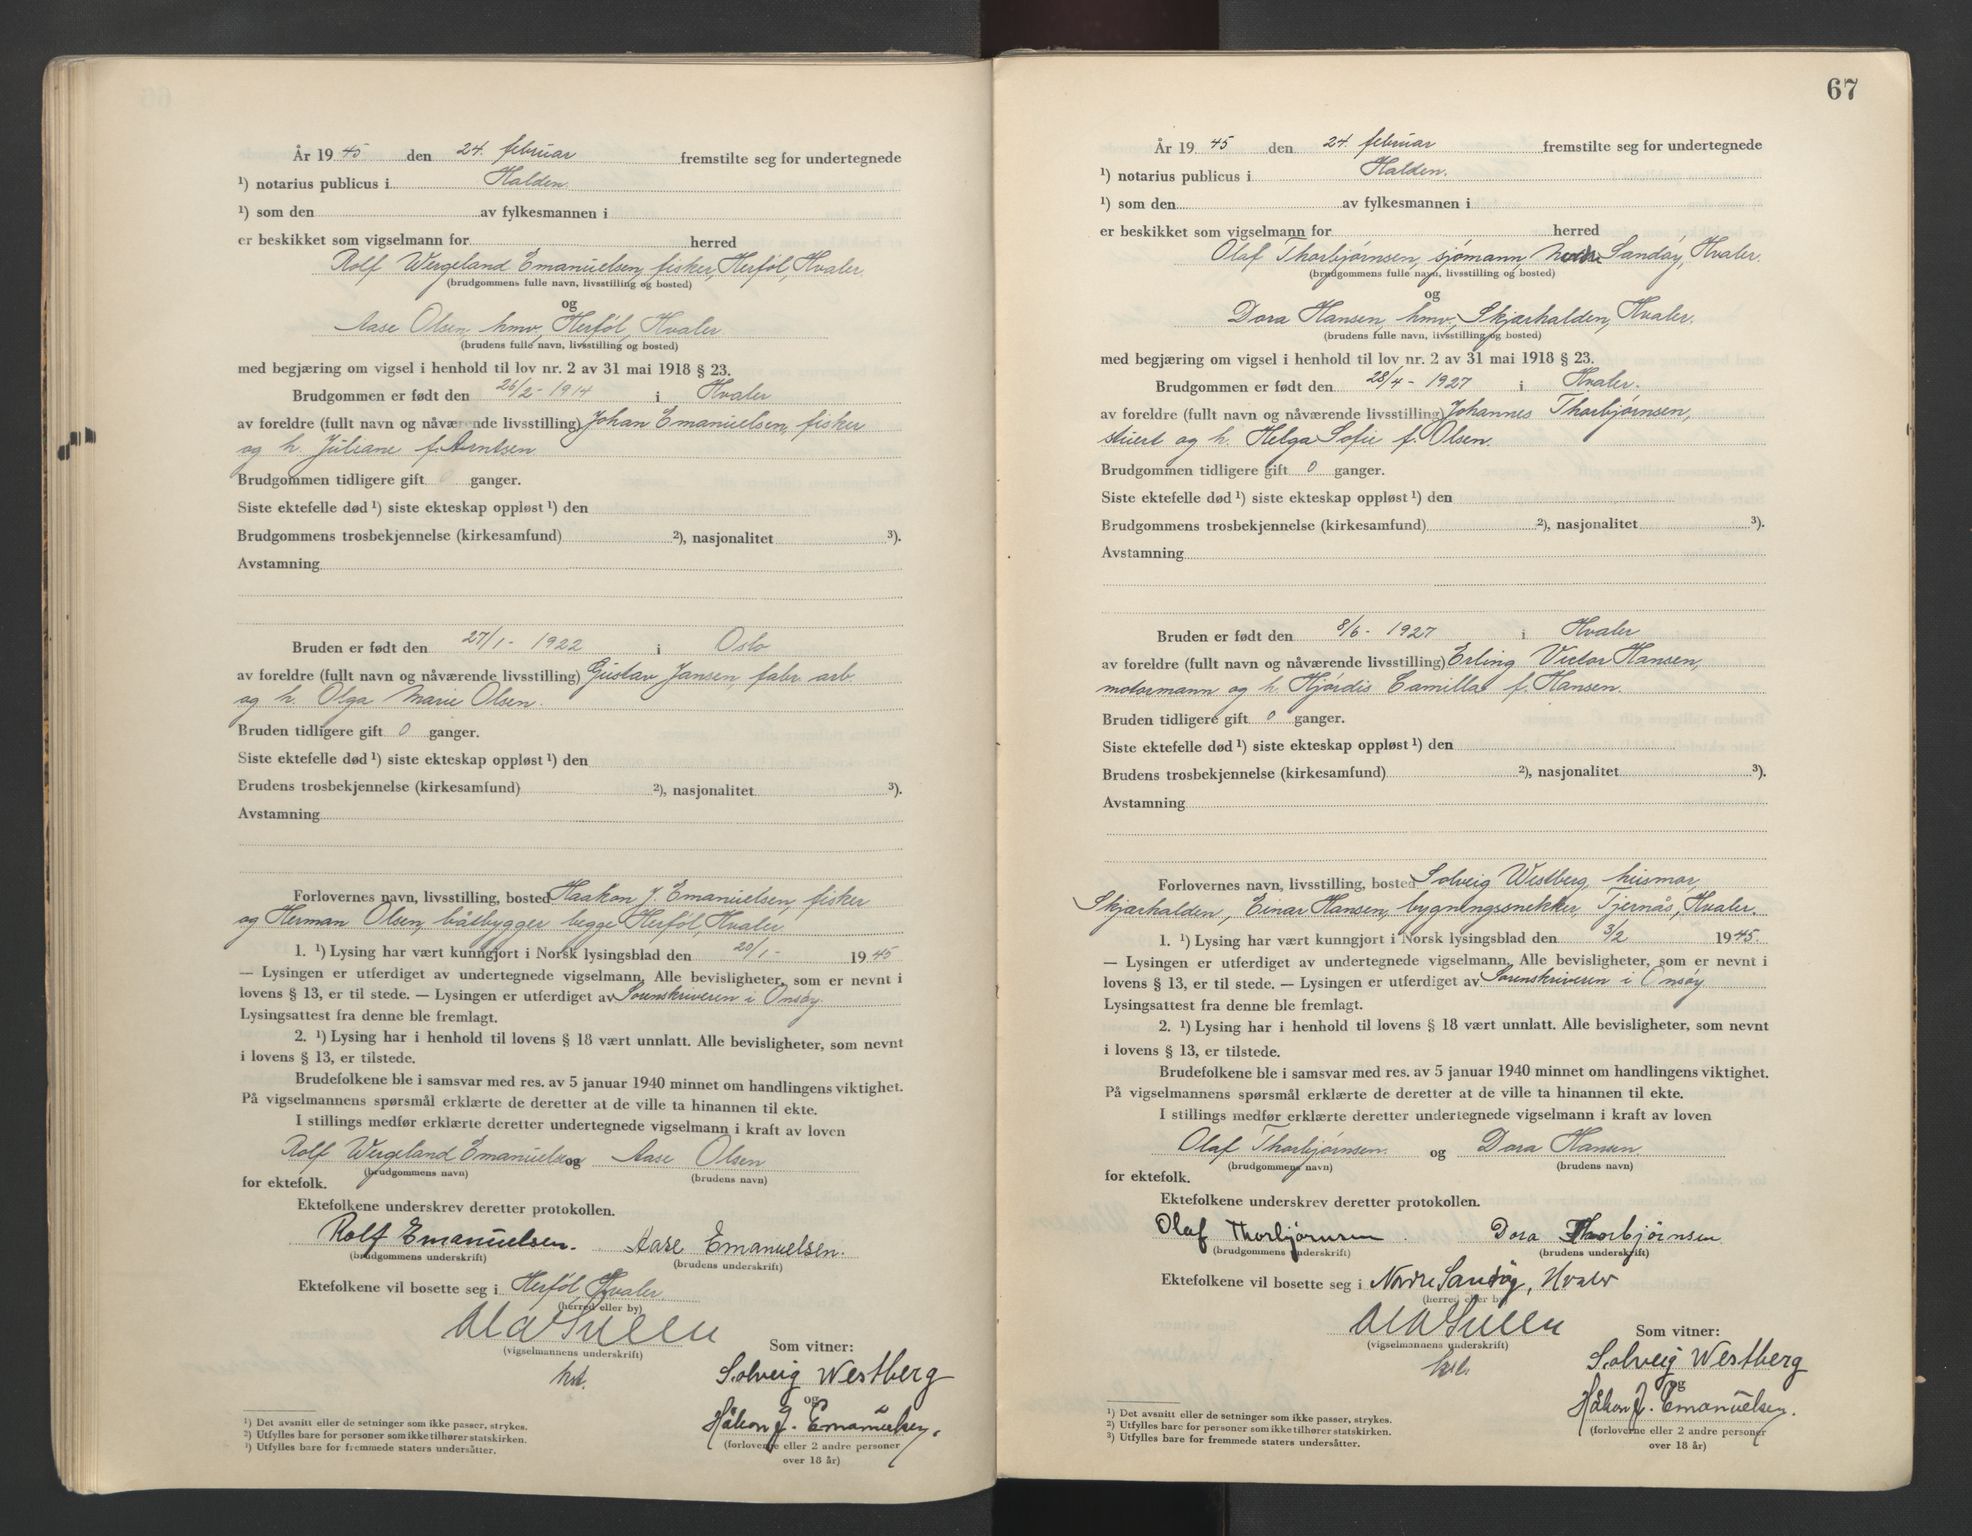 År 1945 den 24. februar fremstilte seg for undertegnede
¹) notarius publicus i Halden.
¹) som den av fylkesmannen i
er beskikket som vigselmann for herred
Rolf Wergeland Emanuelsen, fisker, Herføl, Hvaler.
(brudgommens fulle navn, livsstilling og bosted)
og
Aase Olsen, hmv, Herføl, Hvaler.
(brudens fulle navn, livsstilling og bosted)
med begjæring om vigsel i henhold til lov nr. 2 av 31 mai 1918 § 23.
Brudgommen er født den 26/2 - 1914 i Hvaler
av foreldre (fullt navn og nåværende livsstilling) Johan Emanuelsen, fisker
og h. Juliane f. Arntsen
Brudgommen tidligere gift 0 ganger.
Siste ektefelle død ¹) siste ekteskap oppløst ¹) den
Brudgommens trosbekjennelse (kirkesamfund) ²), nasjonalitet ³).
Avstamning
Bruden er født den 27/1 - 1922 i Oslo
av foreldre (fullt navn og nåværende livsstilling) Gustav Jansen, fabr. arb
og h. Olga Marie Olsen.
Bruden tidligere gift 0 ganger.
Siste ektefelle død ¹) siste ekteskap oppløst ¹) den
Brudens trosbekjennelse (kirkesamfund) ²), nasjonalitet ³).
Avstamning
Forlovernes navn, livsstilling, bosted Haakon J. Emanuelsen, fisker
og Herman Olsen, båtbygger begge Herføl, Hvaler
1. ¹) Lysing har vært kunngjort i Norsk lysingsblad den 20/1 - 1945
— Lysingen er utferdiget av undertegnede vigselmann. Alle bevisligheter, som er nevnt i
lovens § 13, er til stede. — Lysingen er utferdiget av Sorenskriveren i Onsøy
Lysingsattest fra denne ble fremlagt.
2. ¹) Lysing har i henhold til lovens § 18 vært unnlatt. Alle bevisligheter, som nevnt
i lovens § 13, er tilstede.
Brudefolkene ble i samsvar med res. av 5 januar 1940 minnet om handlingens viktighet.
På vigselmannens spørsmål erklærte de deretter at de ville ta hinannen til ekte.
I stillings medfør erklærte deretter undertegnede vigselmann i kraft av loven
Rolf Wergeland Emanuelsen og Aase Olsen
(brudgommens navn) (brudens navn)
for ektefolk.
Ektefolkene underskrev deretter protokollen.
Rolf Emanuelsen. Aase Emanuelsen.
(brudgommens underskrift) (brudens underskrift)
Ektefolkene vil bosette seg i Herføl, Hvaler.
(herred eller by)
(vigselmannens underskrift)
Som vitner:
Solveig Westberg
og
Håkon J. Emanuelsen.
(forloverne eller 2 andre personer
over 18 år)
¹) Det avsnitt eller de setninger som ikke passer, strykes.
²) Utfylles bare for personer som ikke tilhører statskirken.
³) Utfylles bare for fremmede staters undersåtter.
67
År 1945 den 24 februar fremstilte seg for undertegnede
¹) notarius publicus i Halden.
¹) som den av fylkesmannen i
er beskikket som vigselmann for herred
Olaf Thorbjørnsen, sjømann, nordre Sandøy, Hvaler.
(brudgommens fulle navn, livsstilling og bosted)
og
Dora Hansen, hmv, Skjærhalden, Hvaler.
(brudens fulle navn, livsstilling og bosted)
med begjæring om vigsel i henhold til lov nr. 2 av 31 mai 1918 § 23.
Brudgommen er født den 28/4 - 1927 i Hvaler.
av foreldre (fullt navn og nåværende livsstilling) Johannes Thorbjørnsen,
stuert og h. Helga Sofie f. Olsen.
Brudgommen tidligere gift 0 ganger.
Siste ektefelle død ¹) siste ekteskap oppløst ¹) den
Brudgommens trosbekjennelse (kirkesamfund) ²), nasjonalitet ³).
Avstamning
Bruden er født den 8/6 - 1927 i Hvaler
av foreldre (fullt navn og nåværende livsstilling) Erling Victor Hansen,
motormann og h. Hjørdis Camilla f. Hansen.
Bruden tidligere gift 0 ganger.
Siste ektefelle død ¹) siste ekteskap oppløst ¹) den
Brudens trosbekjennelse (kirkesamfund) ²), nasjonalitet ³).
Avstamning
Forlovernes navn, livsstilling, bosted Solveig Westberg, husmor,
Skjærhalden, Einar Hansen, bygningssnekker, Tjernås, Hvaler.
1. ¹) Lysing har vært kunngjort i Norsk lysingsblad den 3/2 1945.
— Lysingen er utferdiget av undertegnede vigselmann. Alle bevisligheter, som er nevnt i
lovens § 13, er til stede. — Lysingen er utferdiget av Sorenskriveren i Onsøy
Lysingsattest fra denne ble fremlagt.
2. ¹) Lysing har i henhold til lovens § 18 vært unnlatt. Alle bevisligheter, som nevnt
i lovens § 13, er tilstede.
Brudefolkene ble i samsvar med res. av 5 januar 1940 minnet om handlingens viktighet.
På vigselmannens spørsmål erklærte de deretter at de ville ta hinannen til ekte.
I stillings medfør erklærte deretter undertegnede vigselmann i kraft av loven
Olaf Thorbjørnsen. og Dora Hansen
(brudgommens navn) (brudens navn)
for ektefolk.
Ektefolkene underskrev deretter protokollen.
Olaf Thorbjørnsen. Dora Thorbjørnsen
(brudgommens underskrift) (brudens underskrift)
Ektefolkene vil bosette seg i Nordre Sandøy, Hvaler
(herred eller by)
(vigselmannens underskrift)
Som vitner:
Solveig Westberg
og
Håkon J. Emanuelsen.
(forloverne eller 2 andre personer
over 18 år)
¹) Det avsnitt eller de setninger som ikke passer, strykes.
²) Utfylles bare for personer som ikke tilhører statskirken.
³) Utfylles bare for fremmede staters undersåtter.